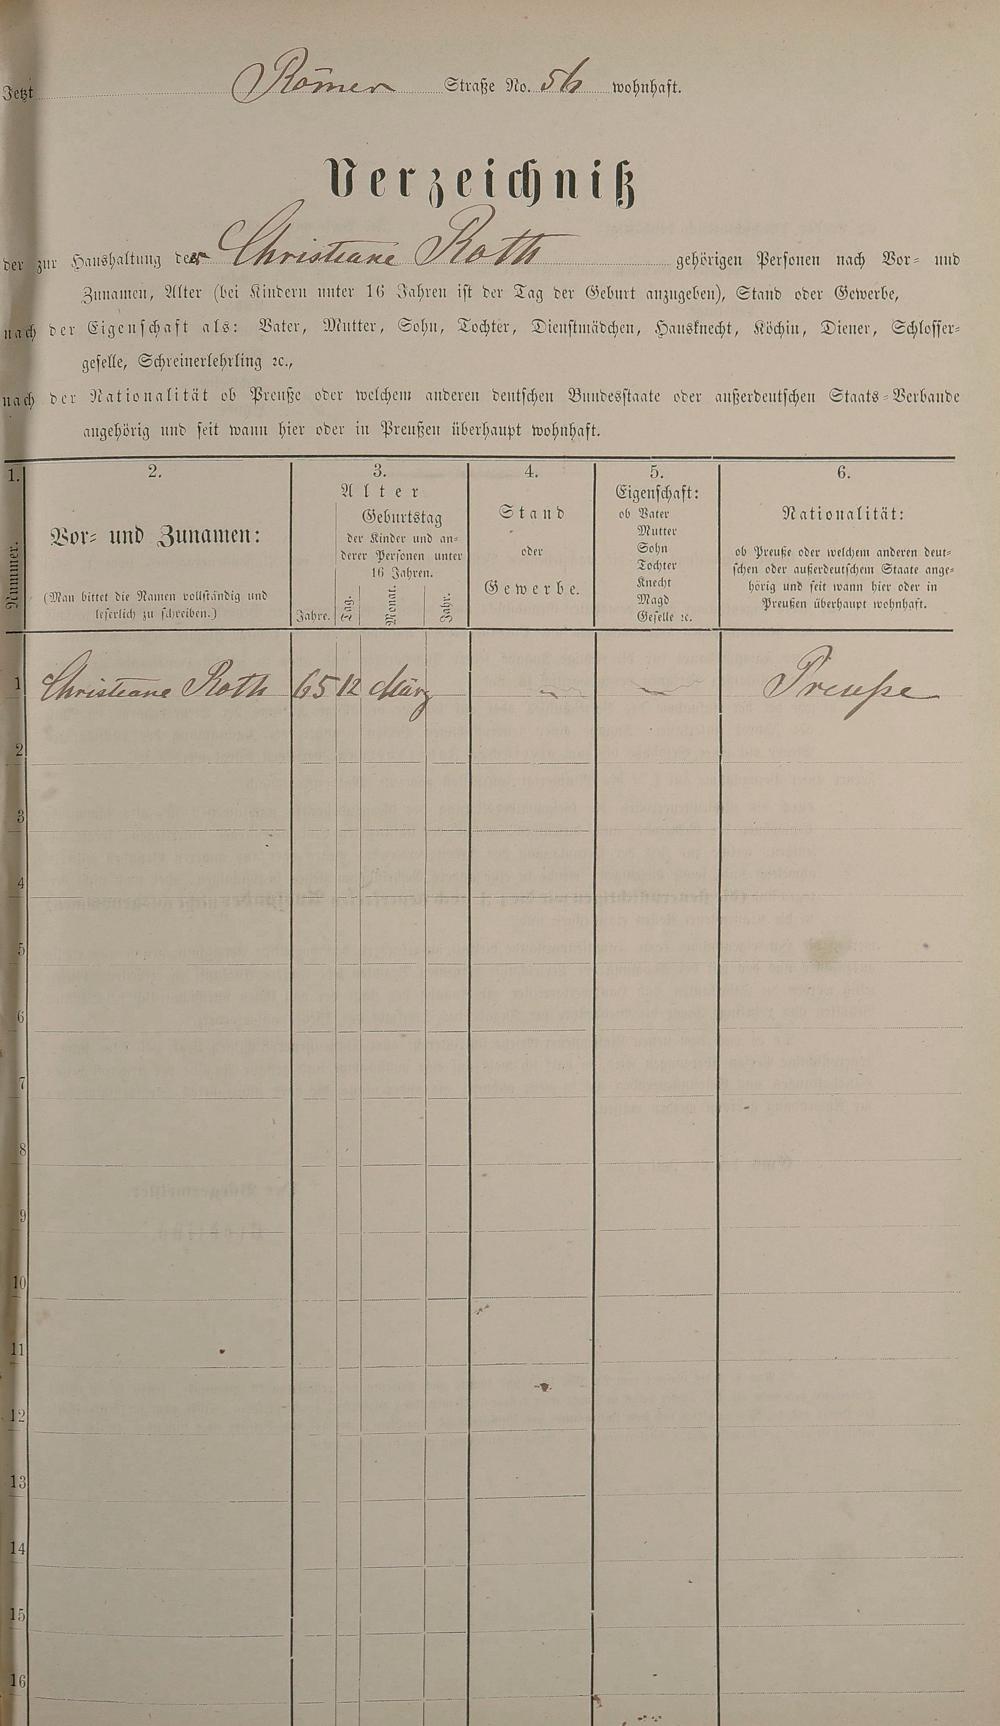 Jetzt Römer Straße No. 56 wohnhaft.
Verzeichniß
der zur Haushaltung der Christiane Roth gehörigen Personen nach Vor- und
Zunamen, Alter (bei Kindern unter 16 Jahren ist der Tag der Geburt anzugeben), Stand oder Gewerbe,
nach der Eigenschaft als: Vater, Mutter, Sohn, Tochter, Dienstmädchen, Hausknecht, Köchin, Diener, Schlosser-
geselle, Schreinerlehrling ꝛc.,
nach der Nationalität ob Preuße oder welchem anderen deutschen Bundesstaate oder außerdeutschen Staats-Verbande
angehörig und seit wann hier oder in Preußen überhaupt wohnhaft.
1.
Nummer.
2.
Vor- und Zunamen:
(Man bittet die Namen vollständig und
leserlich zu schreiben.)
3.
Alter
Geburtstag
der Kinder und an-
derer Personen unter
16 Jahren.
Jahre. Tag. Monat. Jahr.
4.
Stand
oder
Gewerbe.
5.
Eigenschaft:
ob Vater
Mutter
Sohn
Tochter
Knecht
Magd
Geselle ꝛc.
6.
Nationalität:
ob Preuße oder welchem anderen deut-
schen oder außerdeutschem Staate ange-
hörig und seit wann hier oder in
Preußen überhaupt wohnhaft.
1 Christiane Roth 65 12 März Preuße
2
3
4
5
6
7
8
9
10
11
12
13
14
15
16